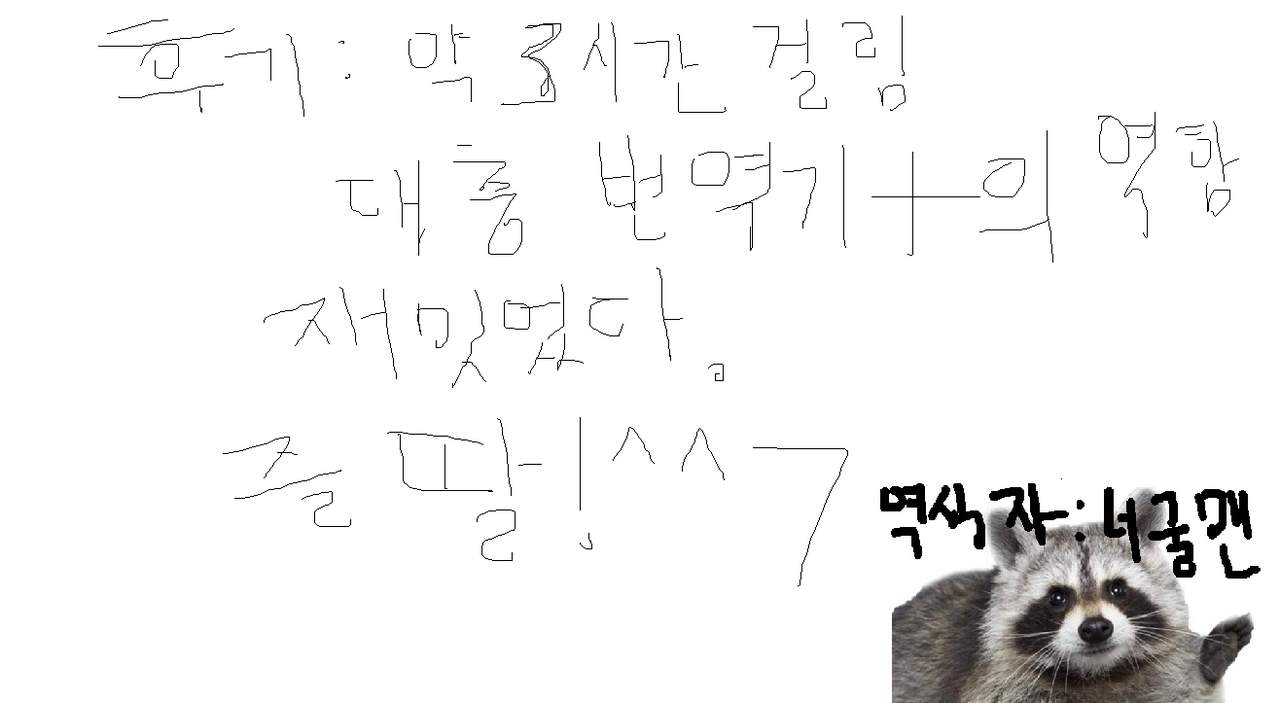 후기: 약 3시간 걸림
대충 번역기+의역함
재밋었다.
즐 딸!^^7
역식자:너굴맨